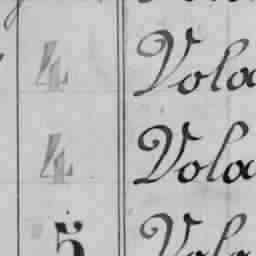 4 Vola
4 Vola
5 Vola